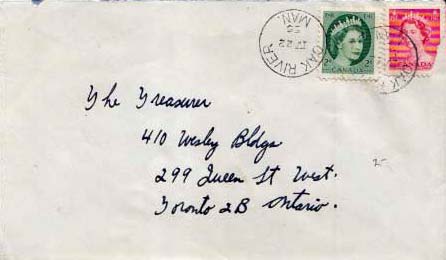 OAK RIVER
MAN.
IV 22
55
2¢ CANADA 2¢
CANADA
The Treasurer
410 Wesley Bldgs
299 Queen St West.
Toronto 2B Ontario.
25